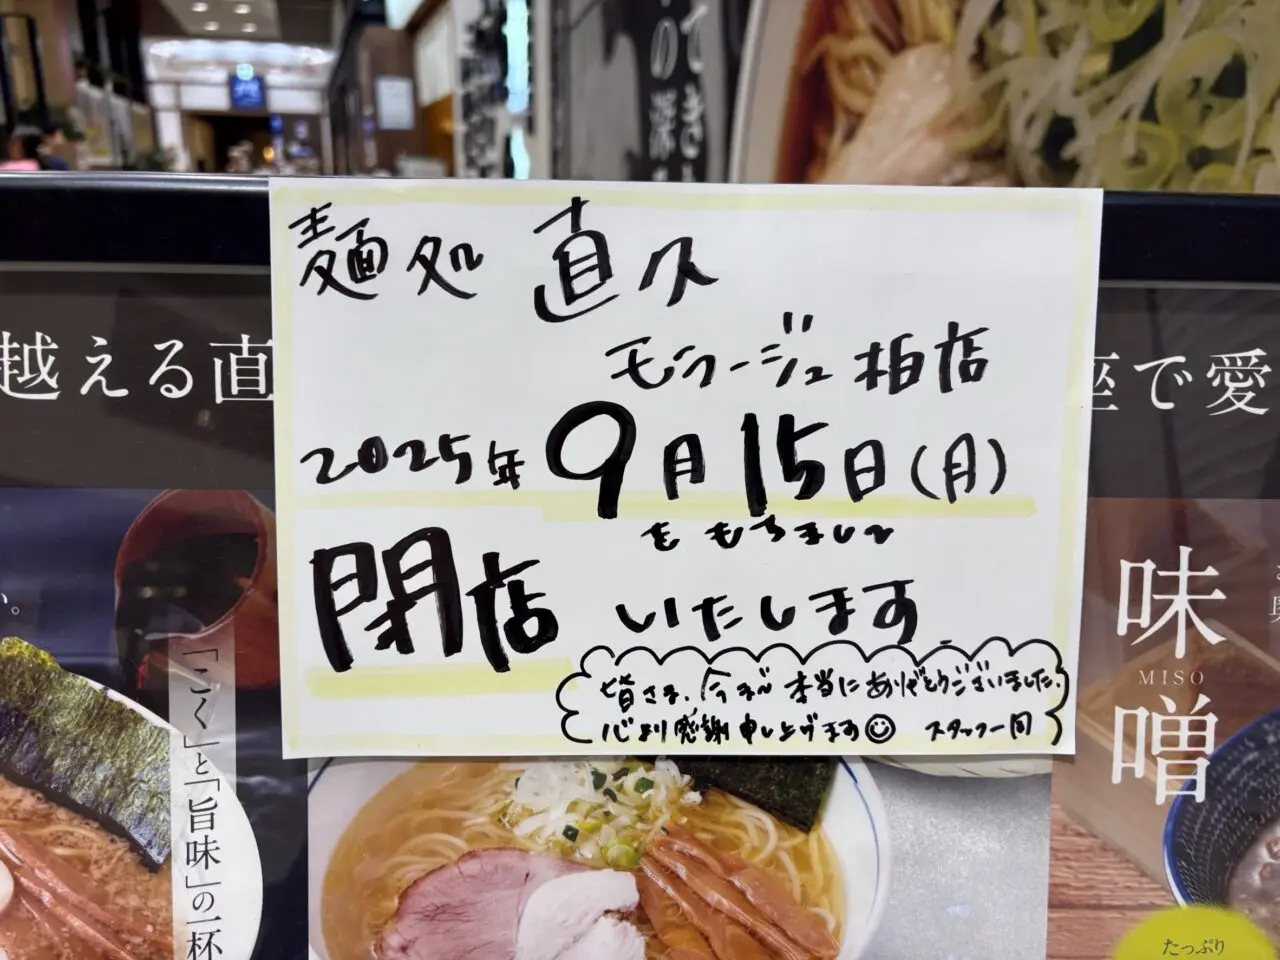 の深
てき
麺処 直久
モラージュ柏店
2025年 9月15日(月)
をもちまして
閉店 いたします
皆さま、今まで本当にありがとうございました。
心より感謝申し上げます スタッフ一同
越える直
座で愛
い。
「こく」と「旨味」の一杯
味噌
MISO
たっぷり